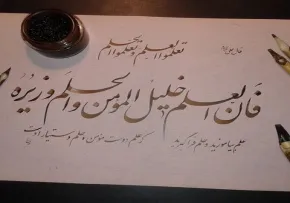 تعلموا العلم و تعلموا الحلم
فَانَ العلم خلیل المؤمن والحلم وزیره
علم بیاموزید و حلم فراگیرید که علم دوست مؤمن و حلم دستیار اوست